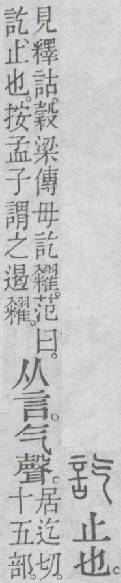 訖止也。
見釋詁。穀梁傳毋訖糴。范曰。
訖止也。按孟子謂之遏糴。
从言。气聲。
居迄切。
十五部。